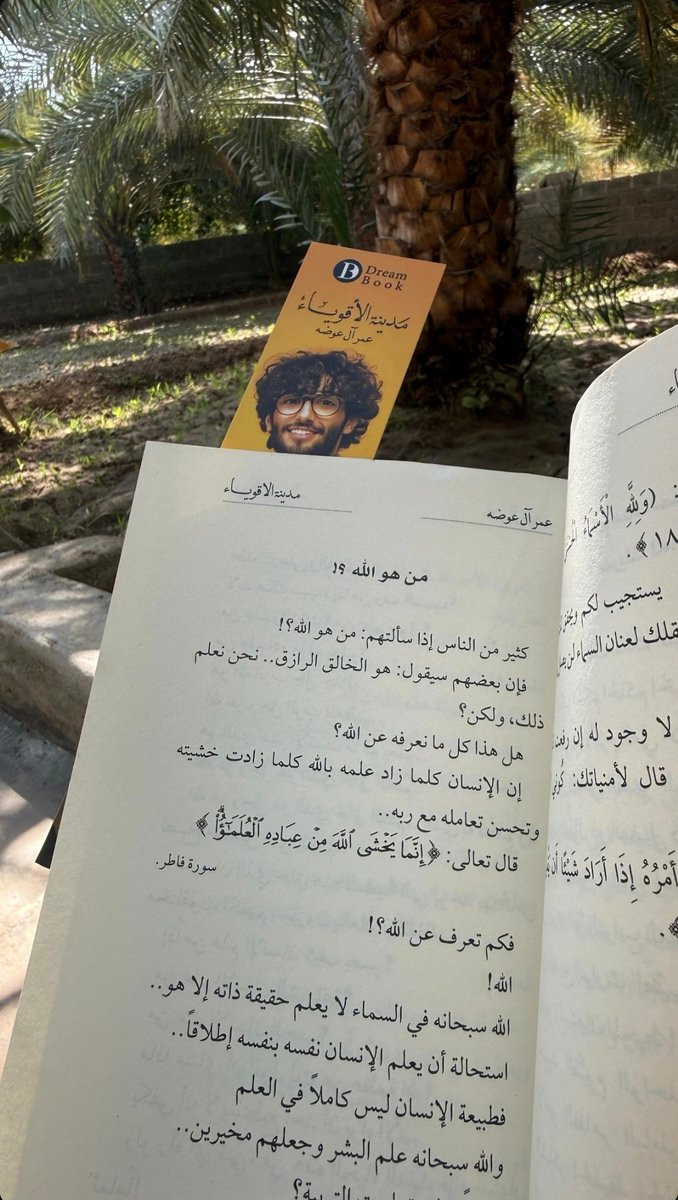 B Dream
Book
مدينة الأقوياء
عمر آل عوضه
عمر آل عوضه
مدينة الاقوياء
من هو الله ؟!
كثير من الناس إذا سألتهم: من هو الله؟!
فإن بعضهم سيقول: هو الخالق الرازق.. نحن نعلم
ذلك، ولكن؟
هل هذا كل ما نعرفه عن الله؟
إن الإنسان كلما زاد علمه بالله كلما زادت خشيته
وتحسن تعامله مع ربه..
قال تعالى: ﴿إِنَّمَا يَخْشَى ٱللَّهَ مِنْ عِبَادِهِ ٱلْعُلَمَٰٓؤُا۟ۗ﴾
سورة فاطر.
فكم تعرف عن الله؟!
الله!
الله سبحانه في السماء لا يعلم حقيقة ذاته إلا هو..
استحالة أن يعلم الإنسان نفسه بنفسه إطلاقاً..
فطبيعة الإنسان ليس كاملاً في العلم
والله سبحانه علم البشر وجعلهم مخيرين..
: (وَلِلَّهِ الْأَسْمَاءُ
﴾.
يستجيب لكم
لعنان السماء
لا وجود له إن
قال لأمنياتك:
أَمْرُهُ إِذَا أَرَادَ شَيْئًا أَن